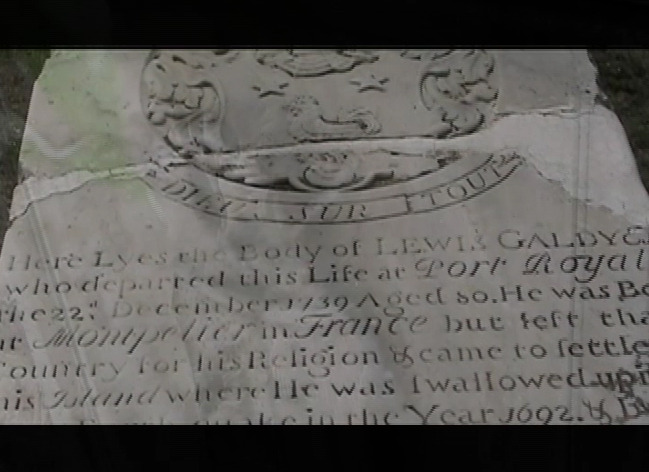 DIEU SUR TTOUT
Here Lyes the Body of LEWIS GALDY Es
who departed this Life at Port Royal
the 22.d December 1739 Aged 80. He was Bo
at Montpelier in France but left tha
Country for his Religion & came to settle
his Island where He was swallowed up in
Earthquake in the Year 1692. &